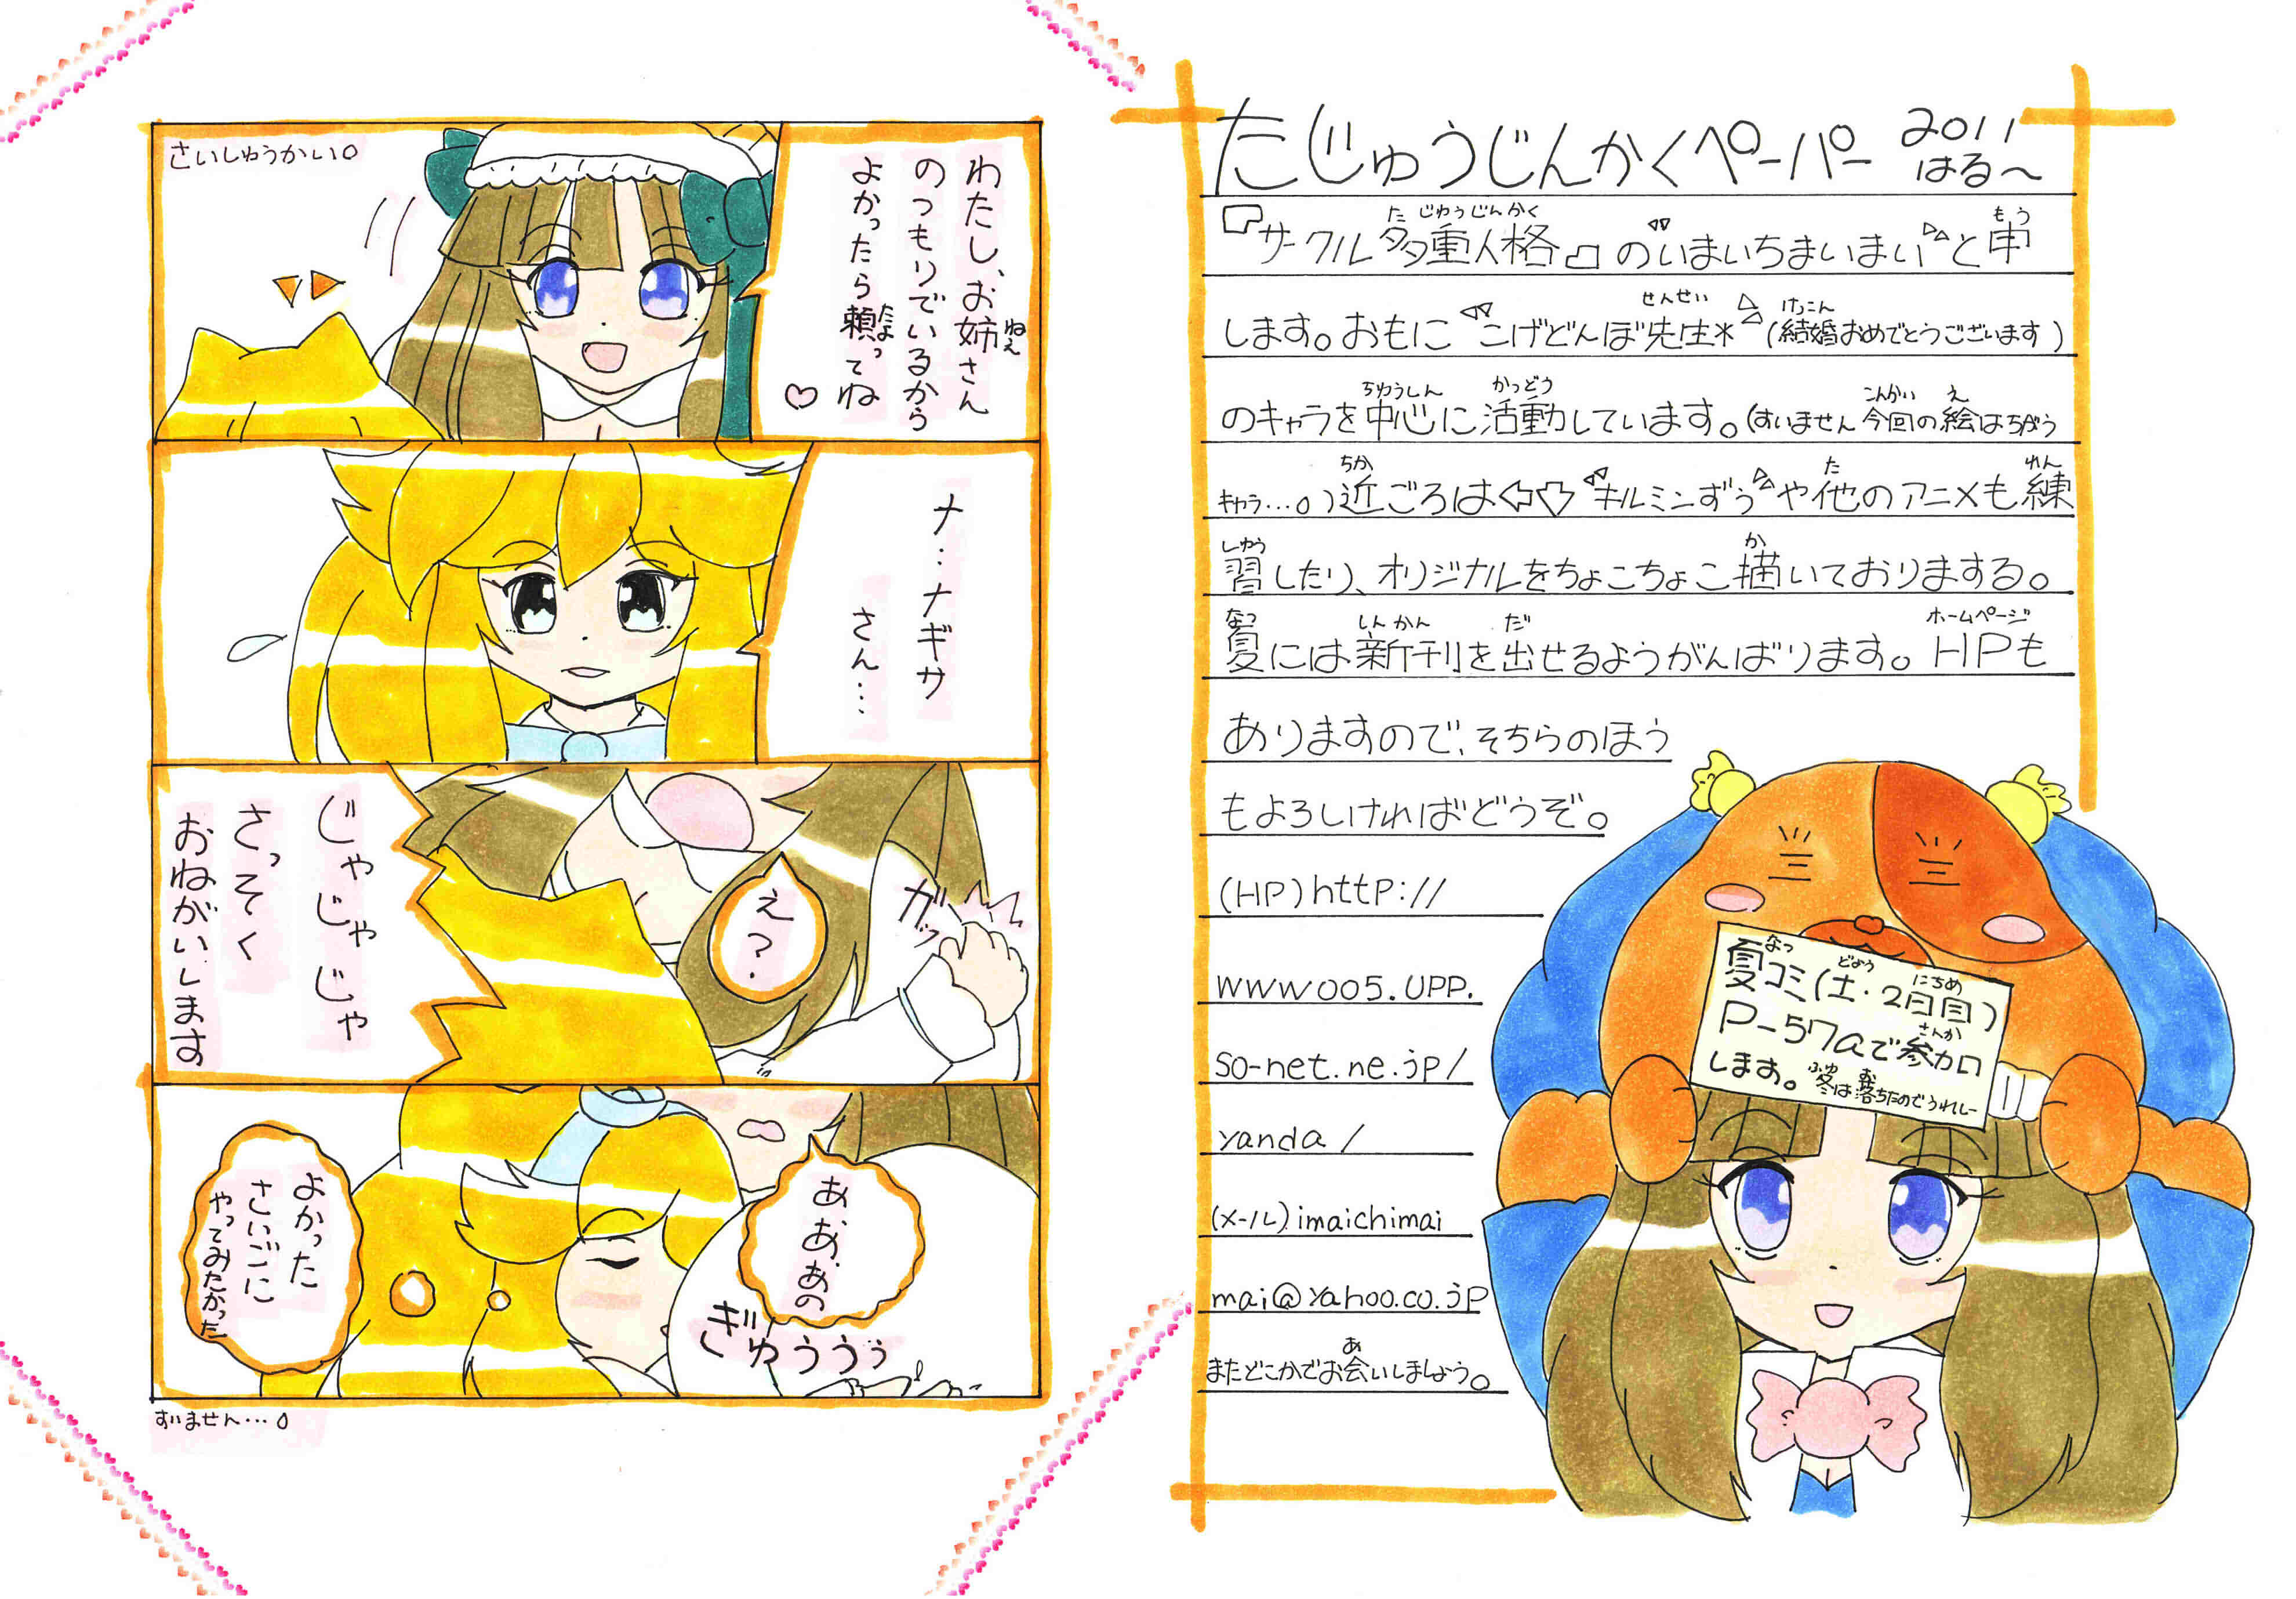 たじゅうじんかくペーパー 2011 はる〜
『サークル多重人格』の"いまいちまいまい"と申
た じゅうじんかく
もう
します。おもに"こげどんぼ先生*"(結婚おめでとうございます)
せんせい
けっこん
のキャラを中心に活動しています。(すいません今回の絵はちがう
ちゅうしん
かつどう
こんかい
え
キャラ…)近ごろは⇦⇩"キルミンずぅ"や他のアニメも練
ちか
た
れん
習したり、オリジナルをちょこちょこ描いておりまする。
しゅう
か
夏には新刊を出せるようがんばります。HPも
なつ
しんかん
だ
ホームページ
ありますので、そちらのほう
もよろしければどうぞ。
(HP)http://
www005.upp.
so-net.ne.jp/
yanda/
(メール)imaichimai
mai@yahoo.co.jp
またどこかでお会いしましょう。
あ
夏コミ(土・2日目)
なつ
どよう
にちめ
P-57aで参加
さんか
します。冬は落ちたのでうれしー
ふゆ
お
さいしゅうかい
わたし、お姉さん
ねえ
のつもりでいるから
よかったら頼ってね♡
たよ
ナ…ナギサ
さん…
え?
ガッ
じゃじゃじゃ
さっそく
おねがいします
あ、あ、あの
ぎゅううぅ
よかった
さいごに
やってみたかった
すいません…